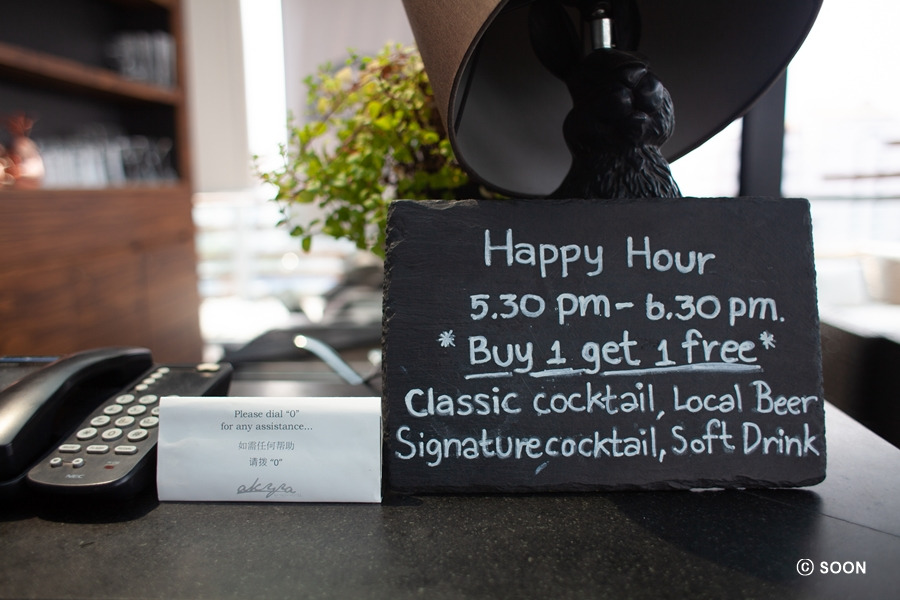 Happy Hour
5.30 pm - 6.30 pm.
*Buy 1 get 1 free*
Classic cocktail, Local Beer
Signature cocktail, Soft Drink
Please dial "0"
for any assistance...
如需任何帮助
请拨 "0"
akyra
NEC
© SOON